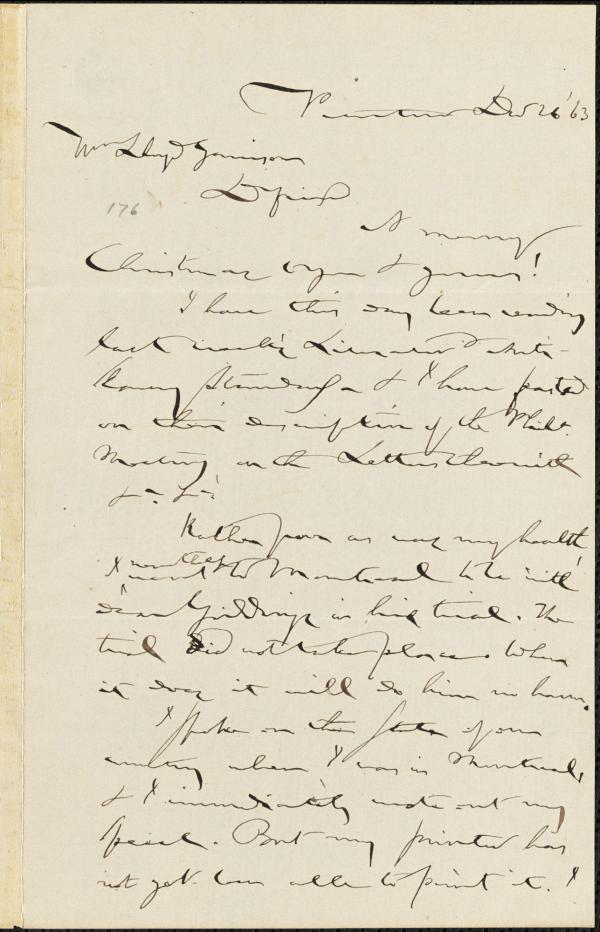 Dec 26 '63
Wm Lloyd Garrison
176
Dr friend
A merry
Christmas to you & yours!
I have this day been reading
last week's Liberator & Anti-
Slavery Standard & I have feasted
on their description of the Phila.
Meeting, on the Letters
&c. &c.
Rather poor as was my health
I went to Montreal to be with
dear Giddings in his trial. The
trial did not take place. When
it does it will do him no harm.
I spoke on the State of our
country when I was in Montreal,
& I immediately wrote out my
Speech. But my printer has
not yet been able to print it. I